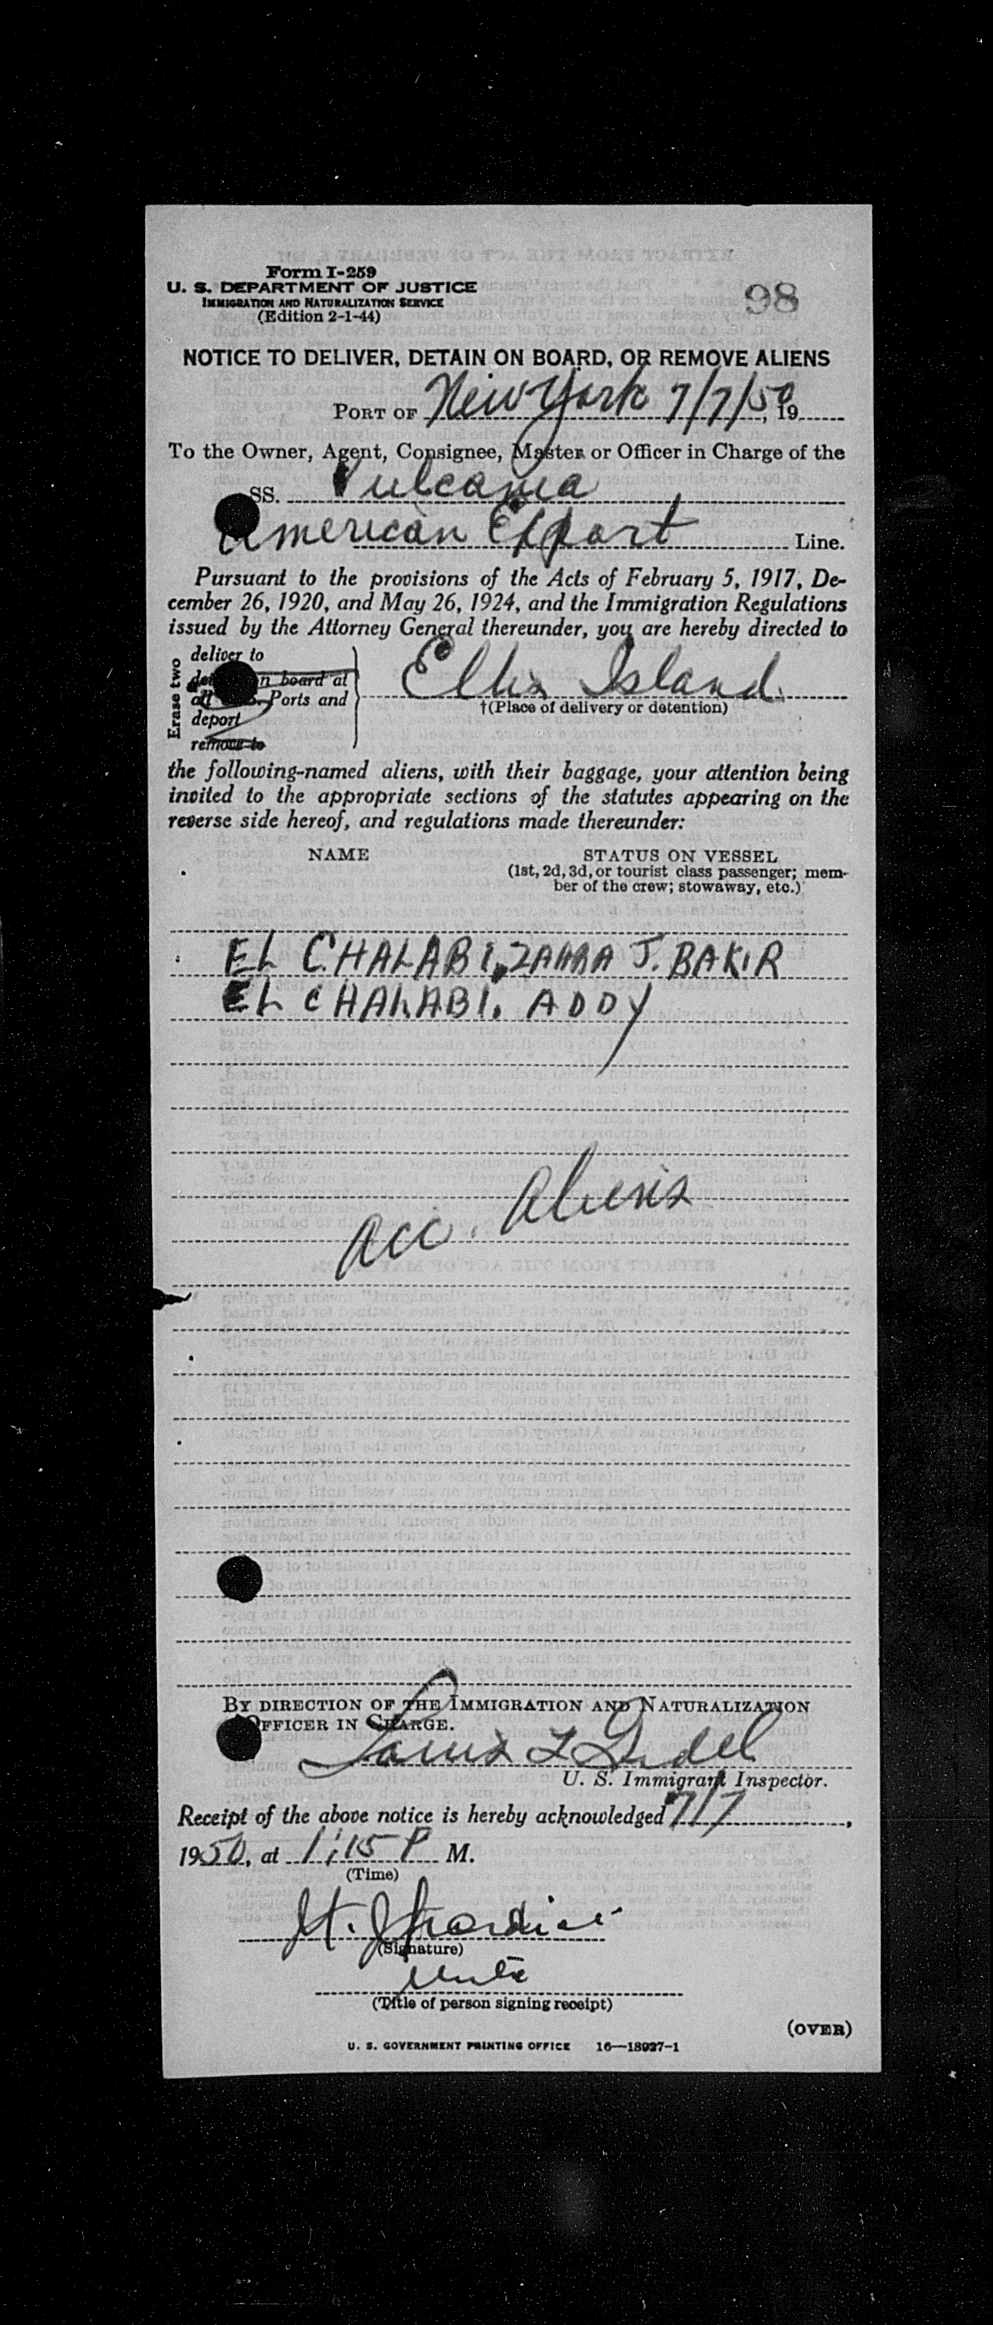 Form I-259
U. S. DEPARTMENT OF JUSTICE
IMMIGRATION AND NATURALIZATION SERVICE
(Edition 2-1-44)
98
NOTICE TO DELIVER, DETAIN ON BOARD, OR REMOVE ALIENS
PORT OF New York 7/7/50, 19
To the Owner, Agent, Consignee, Master or Officer in Charge of the
SS. Vulcania
American Export Line.
Pursuant to the provisions of the Acts of February 5, 1917, De-
cember 26, 1920, and May 26, 1924, and the Immigration Regulations
issued by the Attorney General thereunder, you are hereby directed to
Erase two
deliver to
n board at
all Ports and
deport
remove to
Ellis Island
†(Place of delivery or detention)
the following-named aliens, with their baggage, your attention being
invited to the appropriate sections of the statutes appearing on the
reverse side hereof, and regulations made thereunder:
NAME STATUS ON VESSEL
(1st, 2d, 3d, or tourist class passenger; mem-
ber of the crew; stowaway, etc.)
EL CHALABI, ZAHRA J. BAKIR
EL CHALABI. ADDY
acc. aliens
BY DIRECTION OF THE IMMIGRATION AND NATURALIZATION
OFFICER IN CHARGE.
Louis L
U. S. Immigrant Inspector.
Receipt of the above notice is hereby acknowledged 7/7,
1950, at 1:15 P M.
(Time)
H. J.
(Signature)
(Title of person signing receipt)
(OVER)
U. S. GOVERNMENT PRINTING OFFICE 16—18027-1